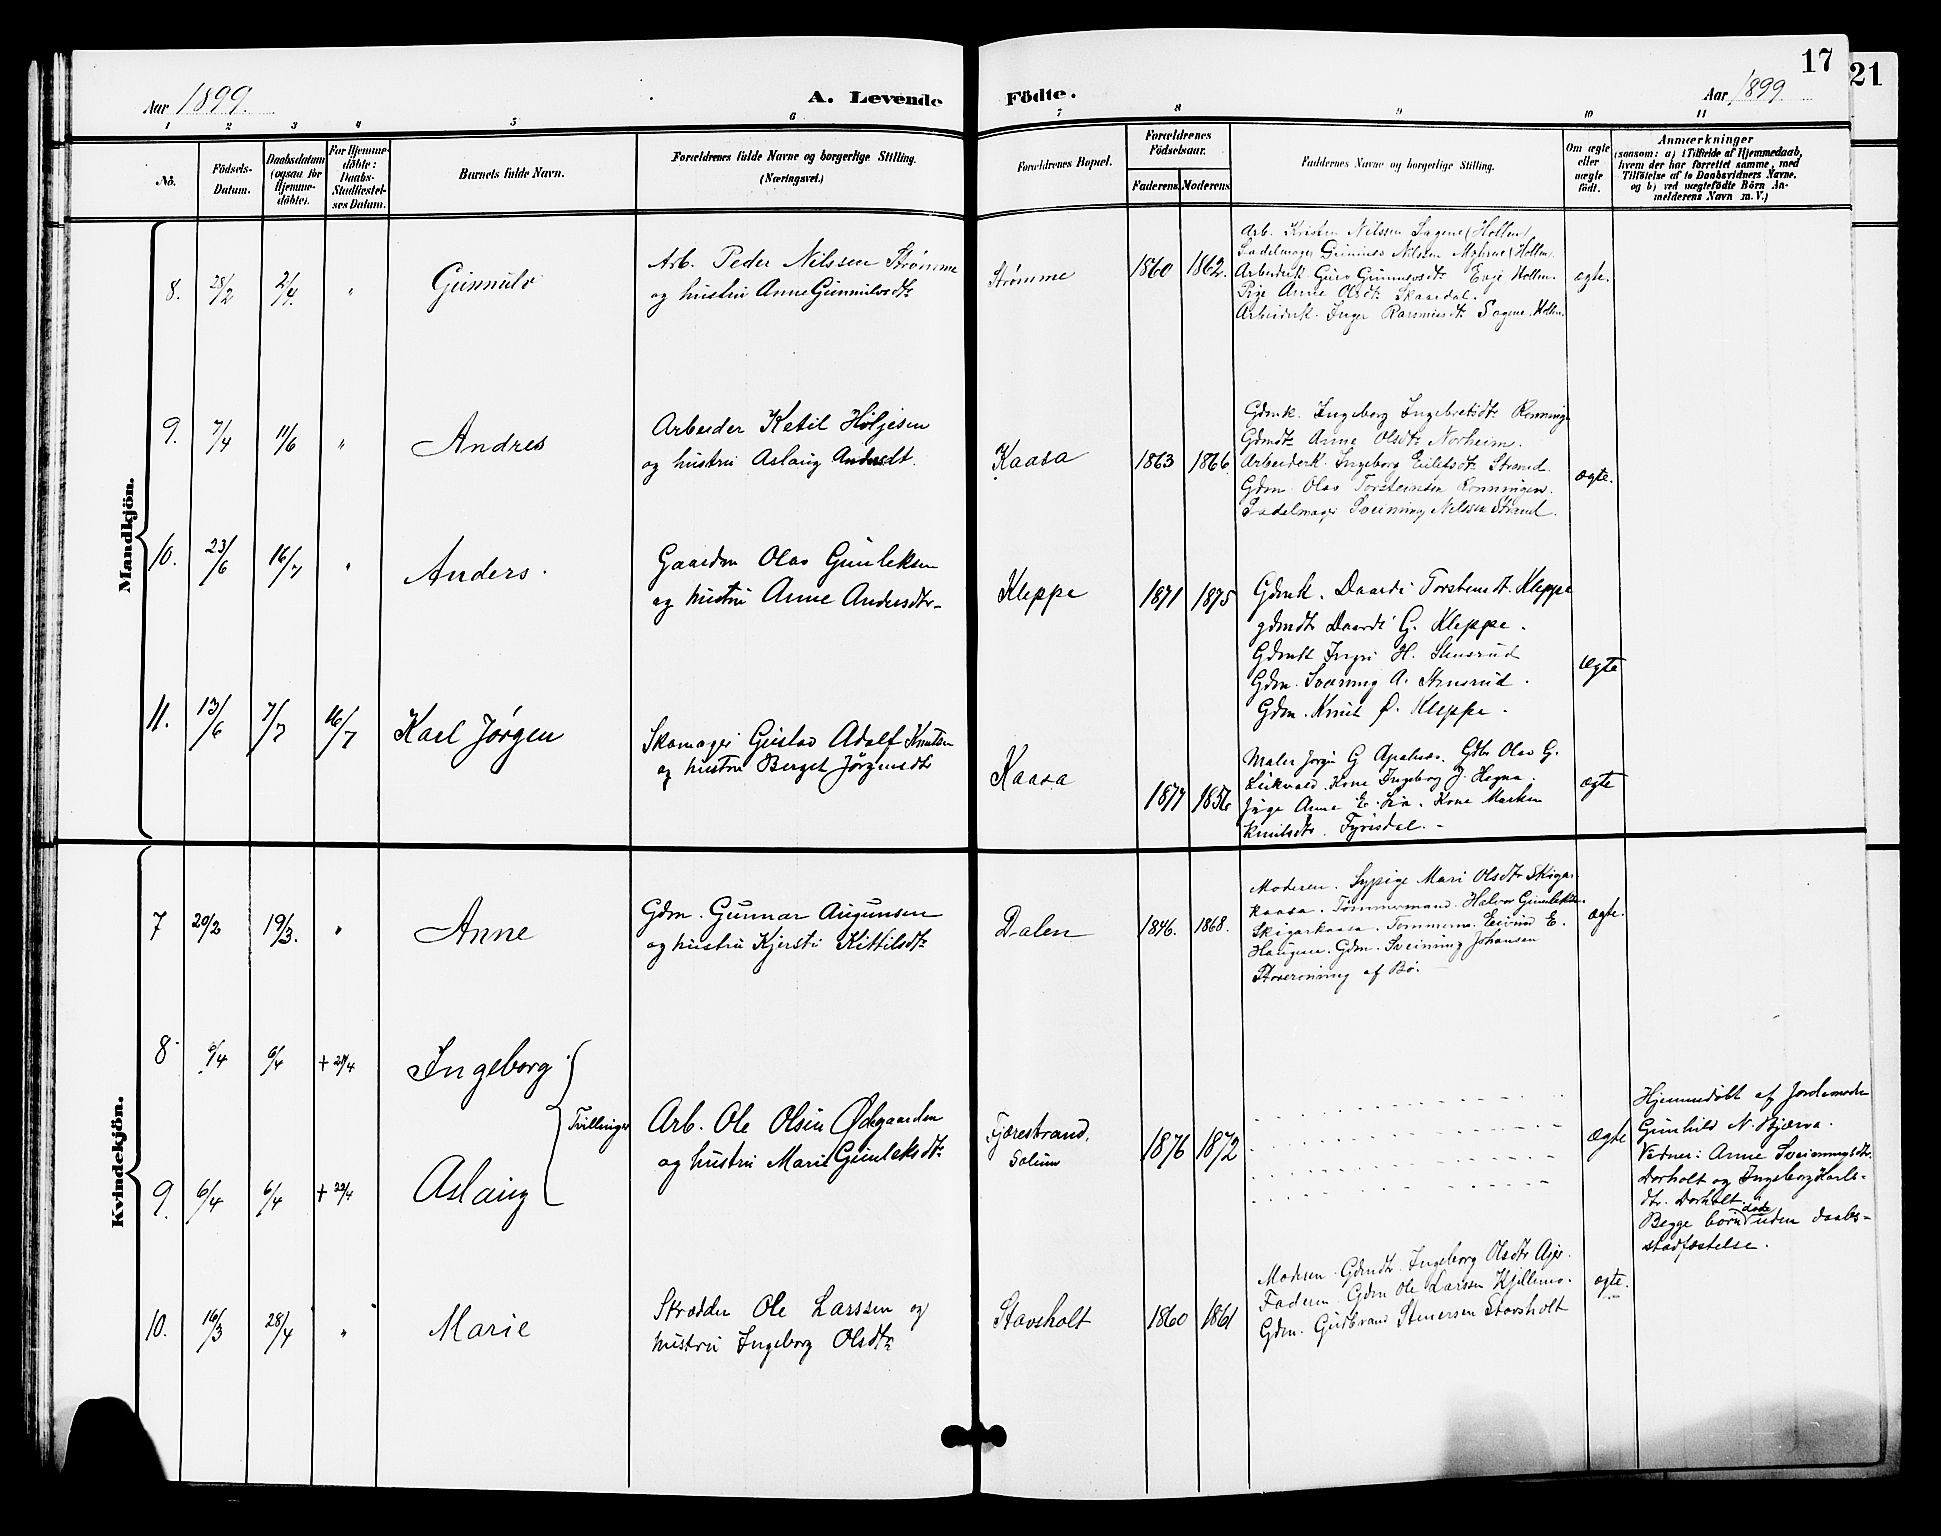 17
21
Aar 1899.
A. Levende
Födte.
Aar 1899
1 2 3 4 5 6 7 8 9 10 11
No.
Födsels-
Datum.
Daabsdatum
(ogsaa for
Hjemme-
döbte).
For Hjemme-
döbte:
Daabs-
Stadfæstel-
ses Datum.
Barnets fulde Navn.
Forældrenes fulde Navne og borgerlige Stilling.
(Næringsvei.)
Forældrenes Bopæl.
Forældrenes
Födselsaar.
Faderens.
Moderens.
Faddernes Navne og borgerlige Stilling.
Om ægte
eller
uægte
födt.
Anmærkninger
(saasom: a) i Tilfælde af Hjemmedaab,
hvem der har forrettet samme, med
Tilföielse af to Daabsvidners Navne,
og b) ved uægtefödte Börn An-
melderens Navn m. V.)
Mandkjön.
8. 28/2 2/4 " Gunnulv
Arb. Peder Nilssen Strømme
og hustru Anne Gunnulvsdtr
Strømme
1860 1862.
Arb. Kristen Nilssen Sagene (Hollen)
Sadelmager Gunnuv Nilssen Myhrene (Hollen.
Arbeiderk. Guro Gunnulvsdtr Eije Hollen.
Pige Anne Olsdtr Skaardal.
Arbeiderk. Inger Rasmusdtr Sagene. Hollen.
ægte.
9. 7/4 11/6 " Andres
Arbeider Ketil Høljesen
og hustru Aslaug Andersdt.
Kaasa
1863 1866.
Gdmk. Ingeborg Ingebretsdtr Rønninge
Gdmdtr Anne Olsdtr Norheim.
Arbeiderk. Ingeborg Eilefsdtr Strand.
Gdm Olav Torsteinsen Rønningen.
Sadelmager Sveinung Nilssen Strand.
ægte.
10. 23/6 16/7 " Anders.
Gaardm Olav Gunleksen
og hustru Anne Andersdtr
Kleppe
1871 1875
Gdmk. Daardi Torsteinsdt. Kleppe
gdmdtr Daardi G. Kleppe.
Gdmk Ingri H. Stensrud
Gdm. Sveinung A. Stensrud.
Gdm. Knut Ø. Kleppe.
ægte
11. 13/6 7/7 16/7 Karl Jørgen
Skomager Gustav Adolf Knutsen
og hustru Berget Jørgensdtr
Kaasa
1877 1856
Maler Jørgen G Apalnes. Gdbr Olav G.
Kone Ingeborg J. Hegna.
Pige Anne E. Lia. Kone Marken
Knutsdtr. Fyrisdal.
ægte
Kvindekjön.
7 20/2 19/3. " Anne
Gdm. Gunnar Augunsen
og hustru Kjersti Kittilsdtr
Dalen
1846. 1868.
Moderen. Sypige Mari Olsdtr Skigar
kaasa. Tømmermand. Halvor Gunleksen.
Skigarkaasa. Tømmerm. Eivind E.
Haugene. Gdm. Sveinung Johansen
af Bø.
ægte.
8 6/4 6/4 + 21/4 Ingeborg
Tvillinger
Arb. Ole Olsen Ødegaarden
og hustru Marie Gunleksdtr
Fjærestrand,
Solum
1876 1872
ægte
Hjemmedøbt af Jordemoder
Gunhild N. Bjærva.
Vidner: Anne Sveinungsdtr.
Dorholt og Ingeborg Karls-
dtr. Dorholt.
Begge børn døde uden daabs-
stadfæstelse.
9. 6/4 6/4 + 22/4 Aslaug
10. 16/3 28/4 " Marie
Skrædder Ole Larssen og
hustru Ingeborg Olsdtr
Stavsholt
1860 1861
Moderen. Gdmdtr. Ingeborg Olsdtr
Faderen. Gdm Ole Larssen
Gdm. Gudbrand Stenersen Stavsholt
ægte.